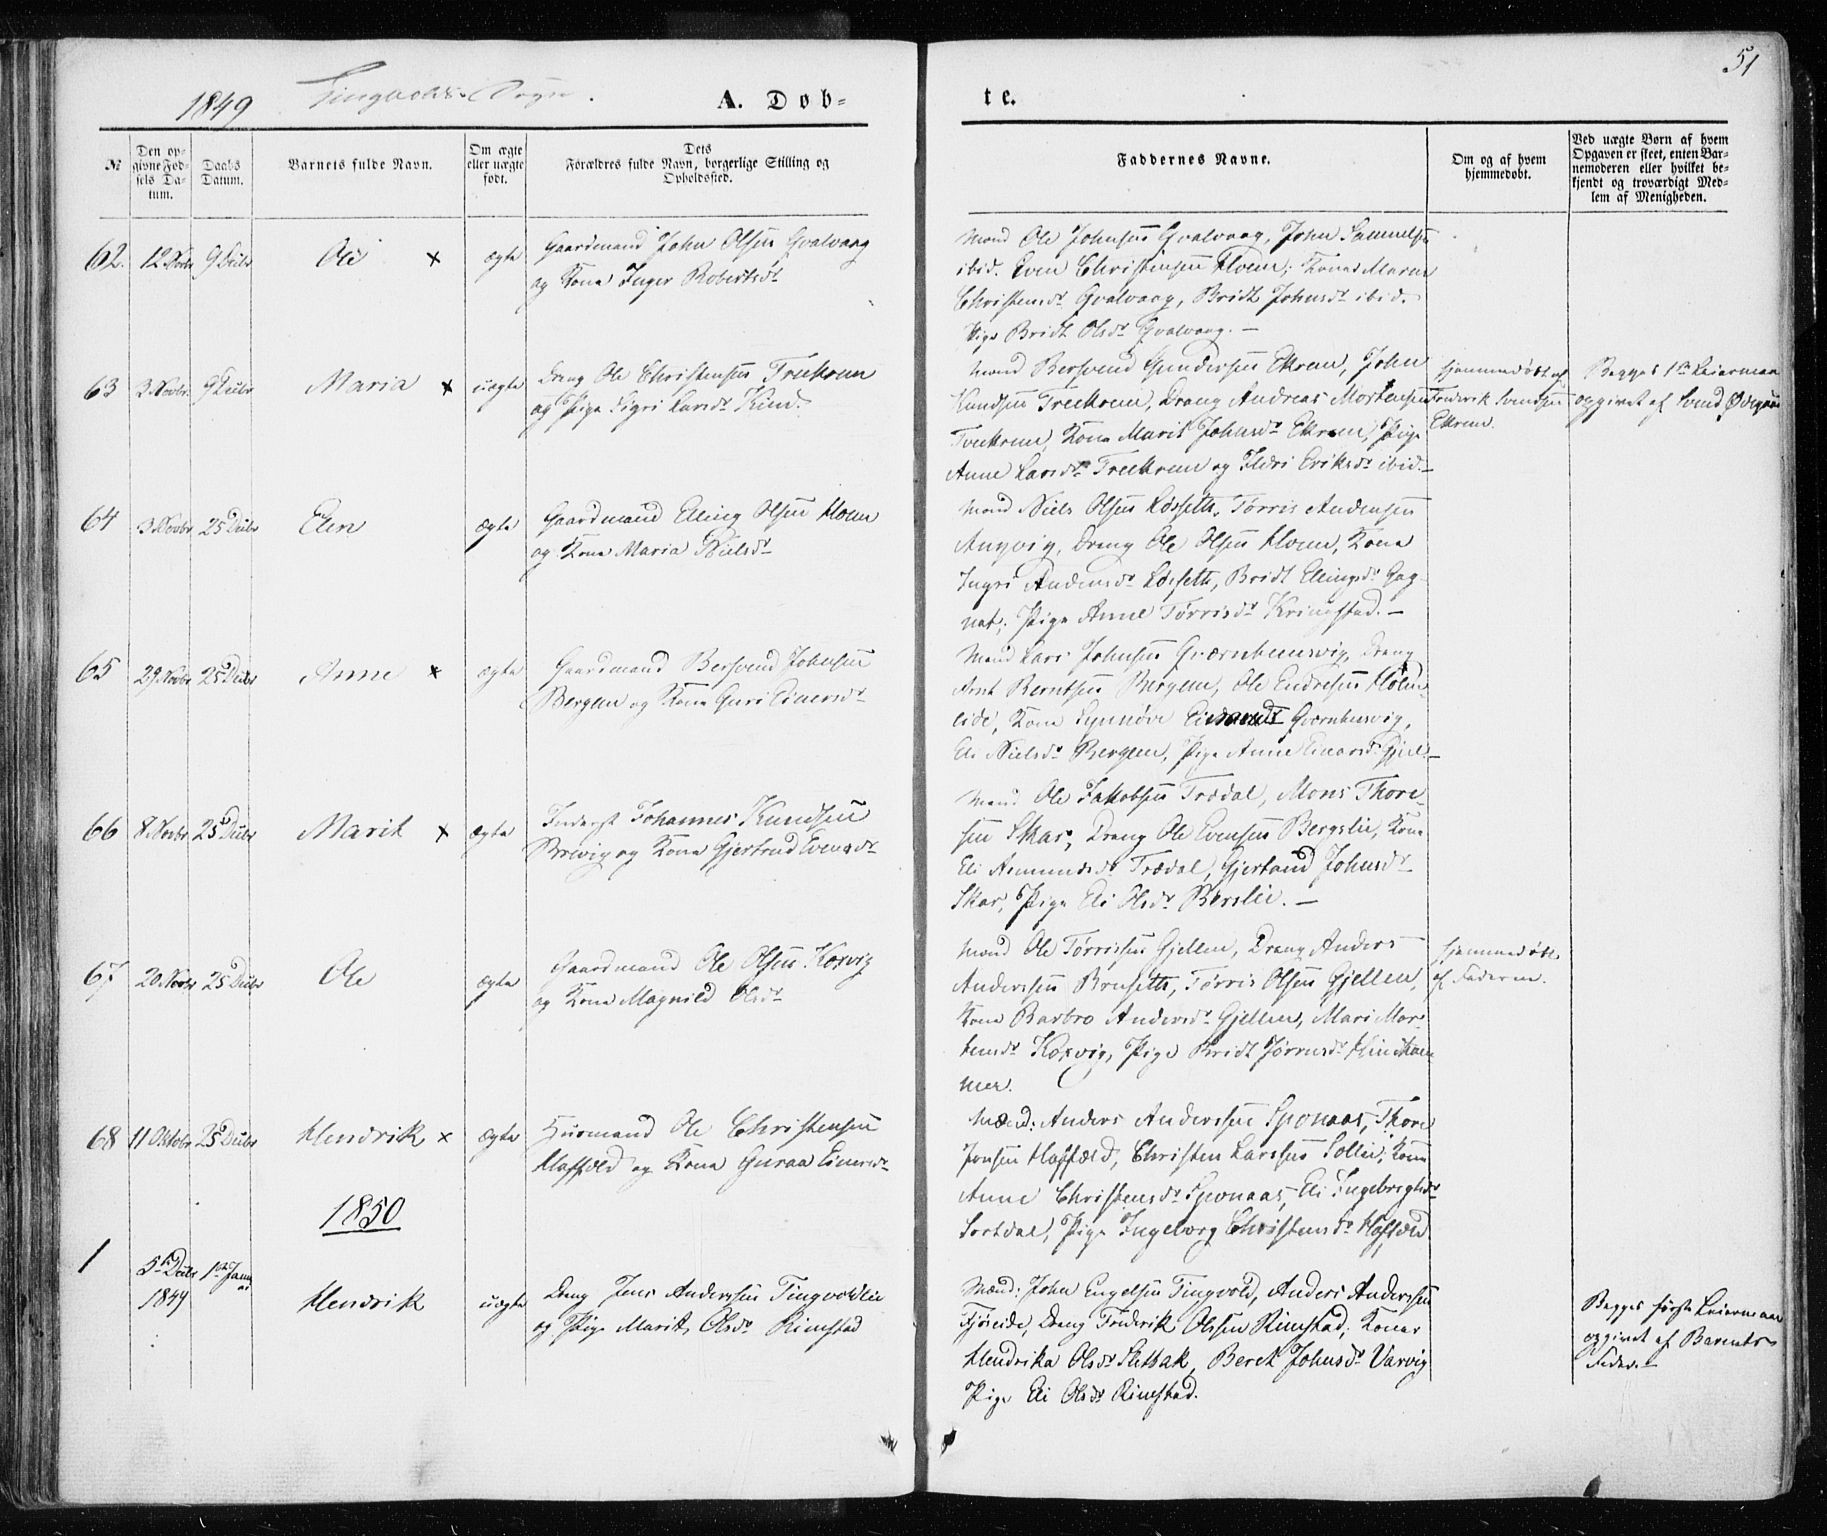 51
1849 Tingvolds Sogn.
A. Døb-
te.
№
Den op-
givne Fød-
sels Da-
tum.
Daabs
Datum.
Barnets fulde Navn.
Om ægte
eller uægte
født.
Dets
Forældres fulde Navn, borgerlige Stilling og
Opholdssted.
Faddernes Navne.
Om og af hvem
hjemmedøbt.
Ved uægte Børn af hvem
Opgaven er skeet, enten Bar-
nemoderen eller hvilket be-
kjendt og troværdigt Med-
lem af Menigheden.
62. 12 Novbr 9 Decbr Ole × ægte
Gaardmand John Olsen Gvalvaag
og Kona Inger Robertsdr
Mænd Ole Johnsen Gvalvaag, John Samuelsen
ibid. Even Christensen Hoem; Koner Maren
Christensdr Gvalvaag, Bridt Johnsdr ibid.
Pige Bridt Olsdr Gvalvaag. —
63 3 Novbr. 9 Decbr Maria × uægte
Dreng Ole Christensen Treekrem
og Pige Sigri Larsdr
Mænd Bersvend Gundersen Ekrem, John
Knudsen Treekrem, Dreng Andreas Mortensen
Treekrem, Kone Marit Johnsdr Ekrem, Pige
Anne Larsdr Treekrem og Ildri Eriksdr ibid. —
hjemmedøbt af
Frederik Svendsen
Ekrem.
Begges 1ste Leiermaal
opgivet af Svend
64 3 Novbr 25 Decbr Elen ægte
Gaardmand Elling Olsen Hoem
og Kona Maria Nielsdr
Mænd Niels Olsen Løsseth, Tørris Andersen
Angvig, Dreng Ole Olsen Hoem, Kona
Ingri Andersdr Løsseth, Bridt Ellingsdr Gag-
nat; Pige Anne Tørrisdr Kringstad. —
65 29 Novbr 25 Decbr Anne × ægte
Gaardmand Bersvend Johnsen
Bergem og Kona Guri Einersdr
Mænd Lars Johnsen Qværnhusvig, Dreng
Arnt Berntsen Bergem, Ole Endresen
Kona Synnøve Qværnhusvig,
Eli Nielsdr Bergem, Pige Anne Einarsdr
66 8 Novbr 25 Decbr Marit × ægte
Inderst Johannes Knudsen
Brevig og Kona Gjertrud Evensdr
Mænd Ole Jakobsen Trædal, Mons Thore-
sen Skar, Dreng Ole Evensen Bergslie, Kona
Eli Asmundsdr Trædal, Gjertrud Johnsdr
Skar, Pige Eli Olsdr Berslie. —
67 20 Novbr 25 Decbr Ole ægte
Gaardmand Ole Olsen Korvig
og Kona Magnild Olsdr
Mænd Ole Tørrisen Gjellen, Dreng Anders
Andersen Brusetth, Tørris Olsen Gjellen,
Kona Barbro Andersdr Gjellen, Mari Mor-
tensdr Korsvig, Pige Bridt
mer.
hjemmedøbt
af Faderen.
68 11 Oktobr 25 Decbr Hendrik × ægte
Huusmand Ole Christensen
Hafsæld og Kona Guraa Einersdr
Mænd: Anders Andersen Sponaas, Thore
Jonsen Hafsæld, Christen Larssen Sollie, Kona
Anne Christensdr Sponaas, Eli Ingebregtsdr
Sortdal, Pige Ingeborg Christensdr Hafsæld
1850
1 5te Decbr 1ste Janu
ar
1849
Hendrik uægte
Dreng Jens Anderssen Tingvoldlie
og Pige Marit Olsdr Rimstad
Mænd: John Engelsen Tingvold, Anders Anderssen
Fjøseide, Dreng Frederik Olssen Rimstad, Koner
Hendrika Olsdr Sletbak, Beret Johnsdr Varvig
Pige Eli Olsdr Rimstad.
Begges første Leiermaal
opgivet af Barnets
Fader. —